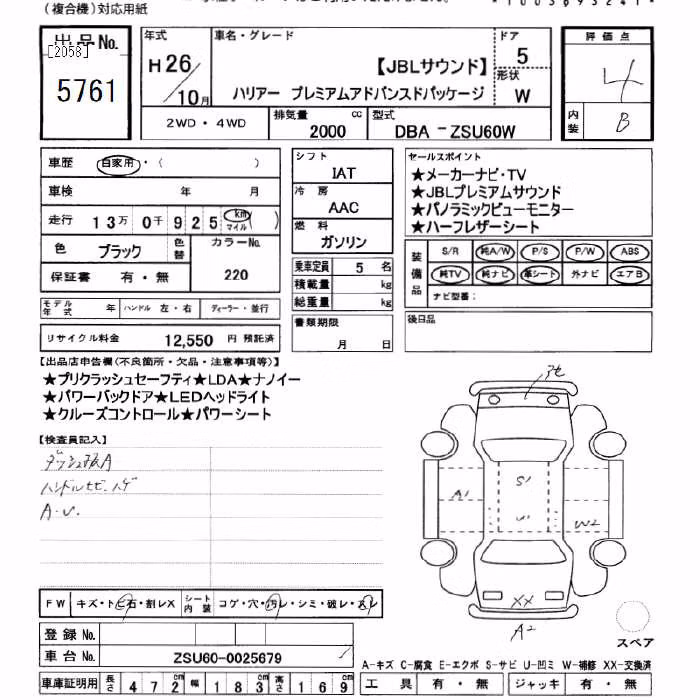 (複合機)対応用紙
出品No.
[2058]
5761
年式
H26/10月
車名・グレード
【JBLサウンド】
ハリアー プレミアムアドバンスドパッケージ
ドア
5
形状
W
評価点
4
内装
B
2WD・4WD
排気量
2000
cc
型式
DBA-ZSU60W
車歴 自家用・( )
車検 年 月
走行 13万0千925 km マイル( )
色 ブラック 色替 カラーNo. 220
保証書 有・無
モデル年式 年 ハンドル 左・右 ディーラー・並行
リサイクル料金 12,550 円 預託済
シフト
IAT
冷房
AAC
燃料
ガソリン
乗車定員 5 名
積載量 kg
総重量 kg
書類期限
月 日
セールスポイント
★メーカーナビ・TV
★JBLプレミアムサウンド
★パノラミックビューモニター
★ハーフレザーシート
装備品
S/R 純A/W P/S P/W ABS
純TV 純ナビ 革シート 外ナビ エアB
ナビ型番:
後日品
【出品店申告欄(不良箇所・欠品・注意事項等)】
★プリクラッシュセーフティ★LDA★ナノイー
★パワーバックドア★LEDヘッドライト
★クルーズコントロール★パワーシート
【検査員記入】
ダッシュ板A
ハンドルセビ、ハゲ
A・U.
A1
S1
U1
W2
XX
A2
FW キズ・トビ石・割レX シート内装 コゲ・穴・汚レ・シミ・破レ・スレ
登録No.
車台No. ZSU60-0025679
車庫証明用 長さ 472cm 幅 183cm 高さ 169cm
スペア
A-キズ C-腐食 E-エクボ S-サビ U-凹ミ W-補修 XX-交換済
工具 有・無 ジャッキ 有・無